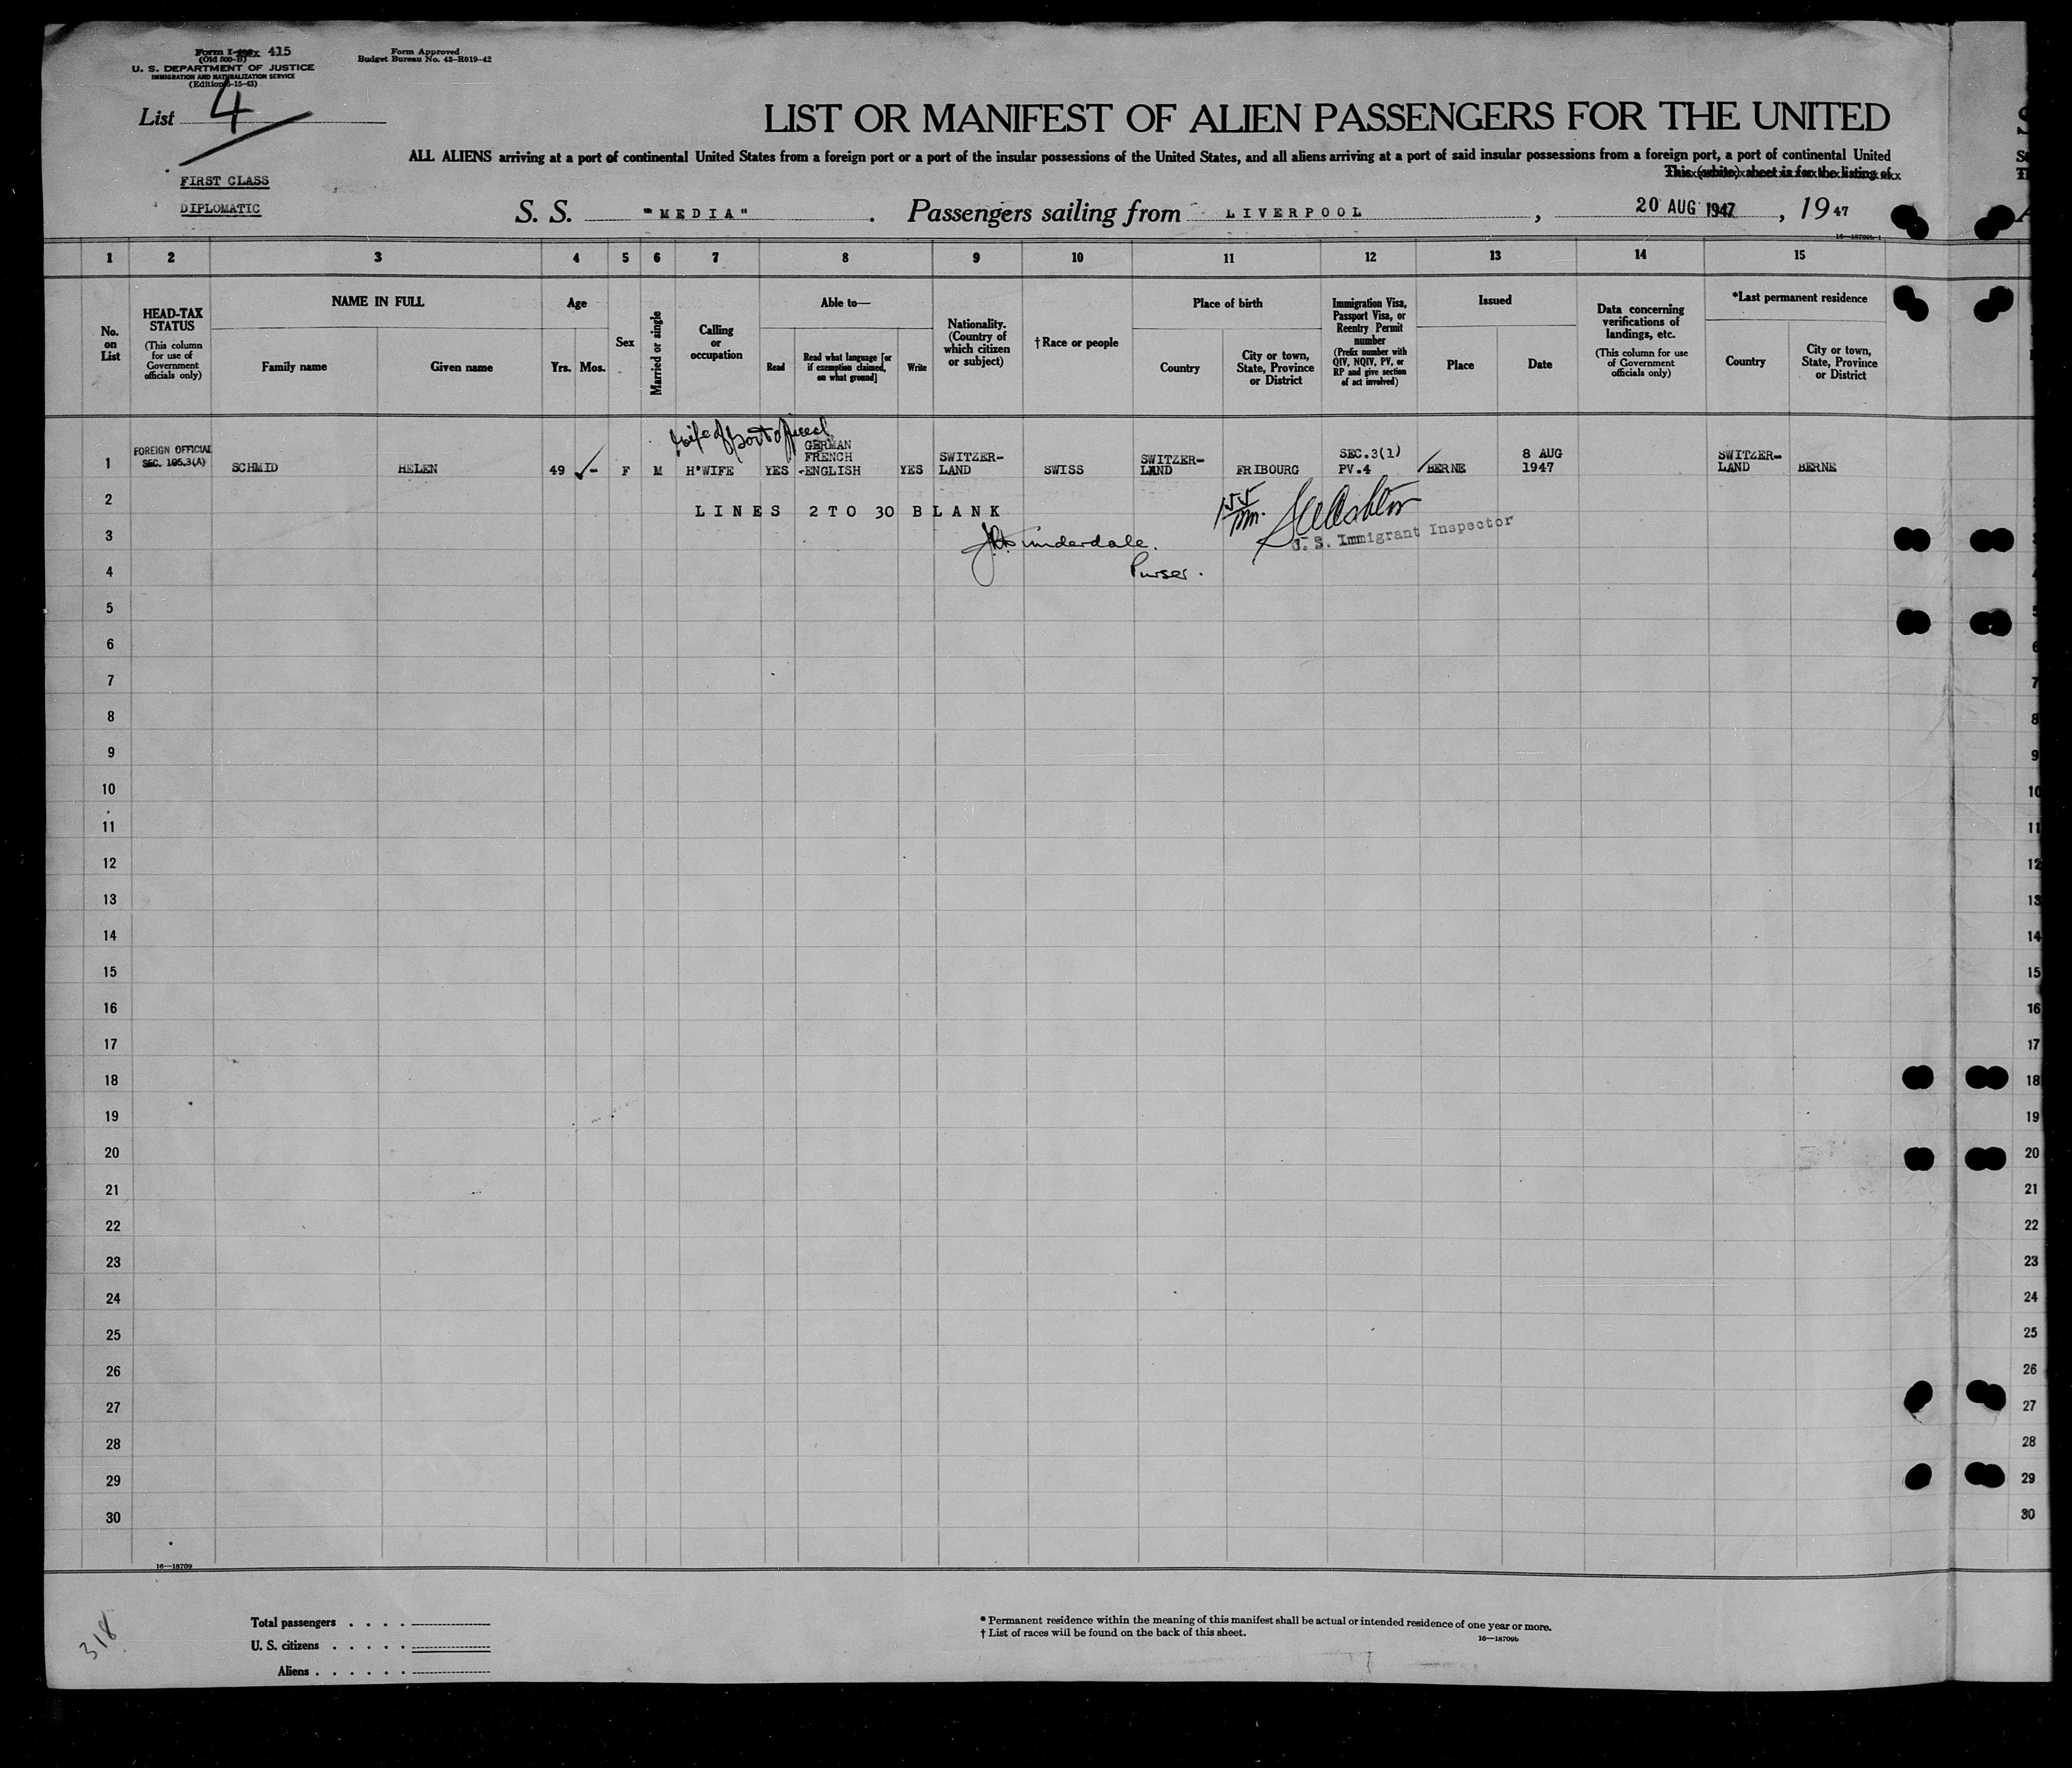 Form I- 415
(Old 500-B)
U. S. DEPARTMENT OF JUSTICE
IMMIGRATION AND NATURALIZATION SERVICE
(Edition 6-15-43)
Form Approved
Budget Bureau No. 43-R019-42
List 4
LIST OR MANIFEST OF ALIEN PASSENGERS FOR THE UNITED
ALL ALIENS arriving at a port of continental United States from a foreign port or a port of the insular possessions of the United States, and all aliens arriving at a port of said insular possessions from a foreign port, a port of continental United
This (white) sheet is for the listing of
FIRST CLASS
DIPLOMATIC
S. S. "MEDIA" . Passengers sailing from LIVERPOOL , 20 AUG 1947 , 19 47
16—18709b-1
1 2 3 4 5 6 7 8 9 10 11 12 13 14 15
No. on List
HEAD-TAX STATUS
(This column for use of Government officials only)
NAME IN FULL
Family name
Given name
Age
Yrs. Mos.
Sex
Married or single
Calling or occupation
Able to—
Read
Read what language [or if exemption claimed, on what ground]
Write
Nationality. (Country of which citizen or subject)
† Race or people
Place of birth
Country
City or town, State, Province or District
Immigration Visa, Passport Visa, or Reentry Permit number
(Prefix number with QIV, NQIV, PV, or RP and give section of act involved)
Issued
Place
Date
Data concerning verifications of landings, etc.
(This column for use of Government officials only)
*Last permanent residence
Country
City or town, State, Province or District
wife of
1 FOREIGN OFFICIAL SEC. 105.3(A) SCHMID HELEN 49 - F M H'WIFE YES GERMAN FRENCH -ENGLISH YES SWITZER-LAND SWISS SWITZER-LAND FRIBOURG SEC.3(1) PV.4 BERNE 8 AUG 1947 SWITZER-LAND BERNE
2
LINES 2 TO 30 BLANK
U. S. Immigrant Inspector
3
4
Purser.
5
6
7
8
9
10
11
12
13
14
15
16
17
18
19
20
21
22
23
24
25
26
27
28
29
30
16—18709
318
Total passengers . . . .
U. S. citizens . . . . .
Aliens . . . . . .
* Permanent residence within the meaning of this manifest shall be actual or intended residence of one year or more.
† List of races will be found on the back of this sheet.
16—18709b